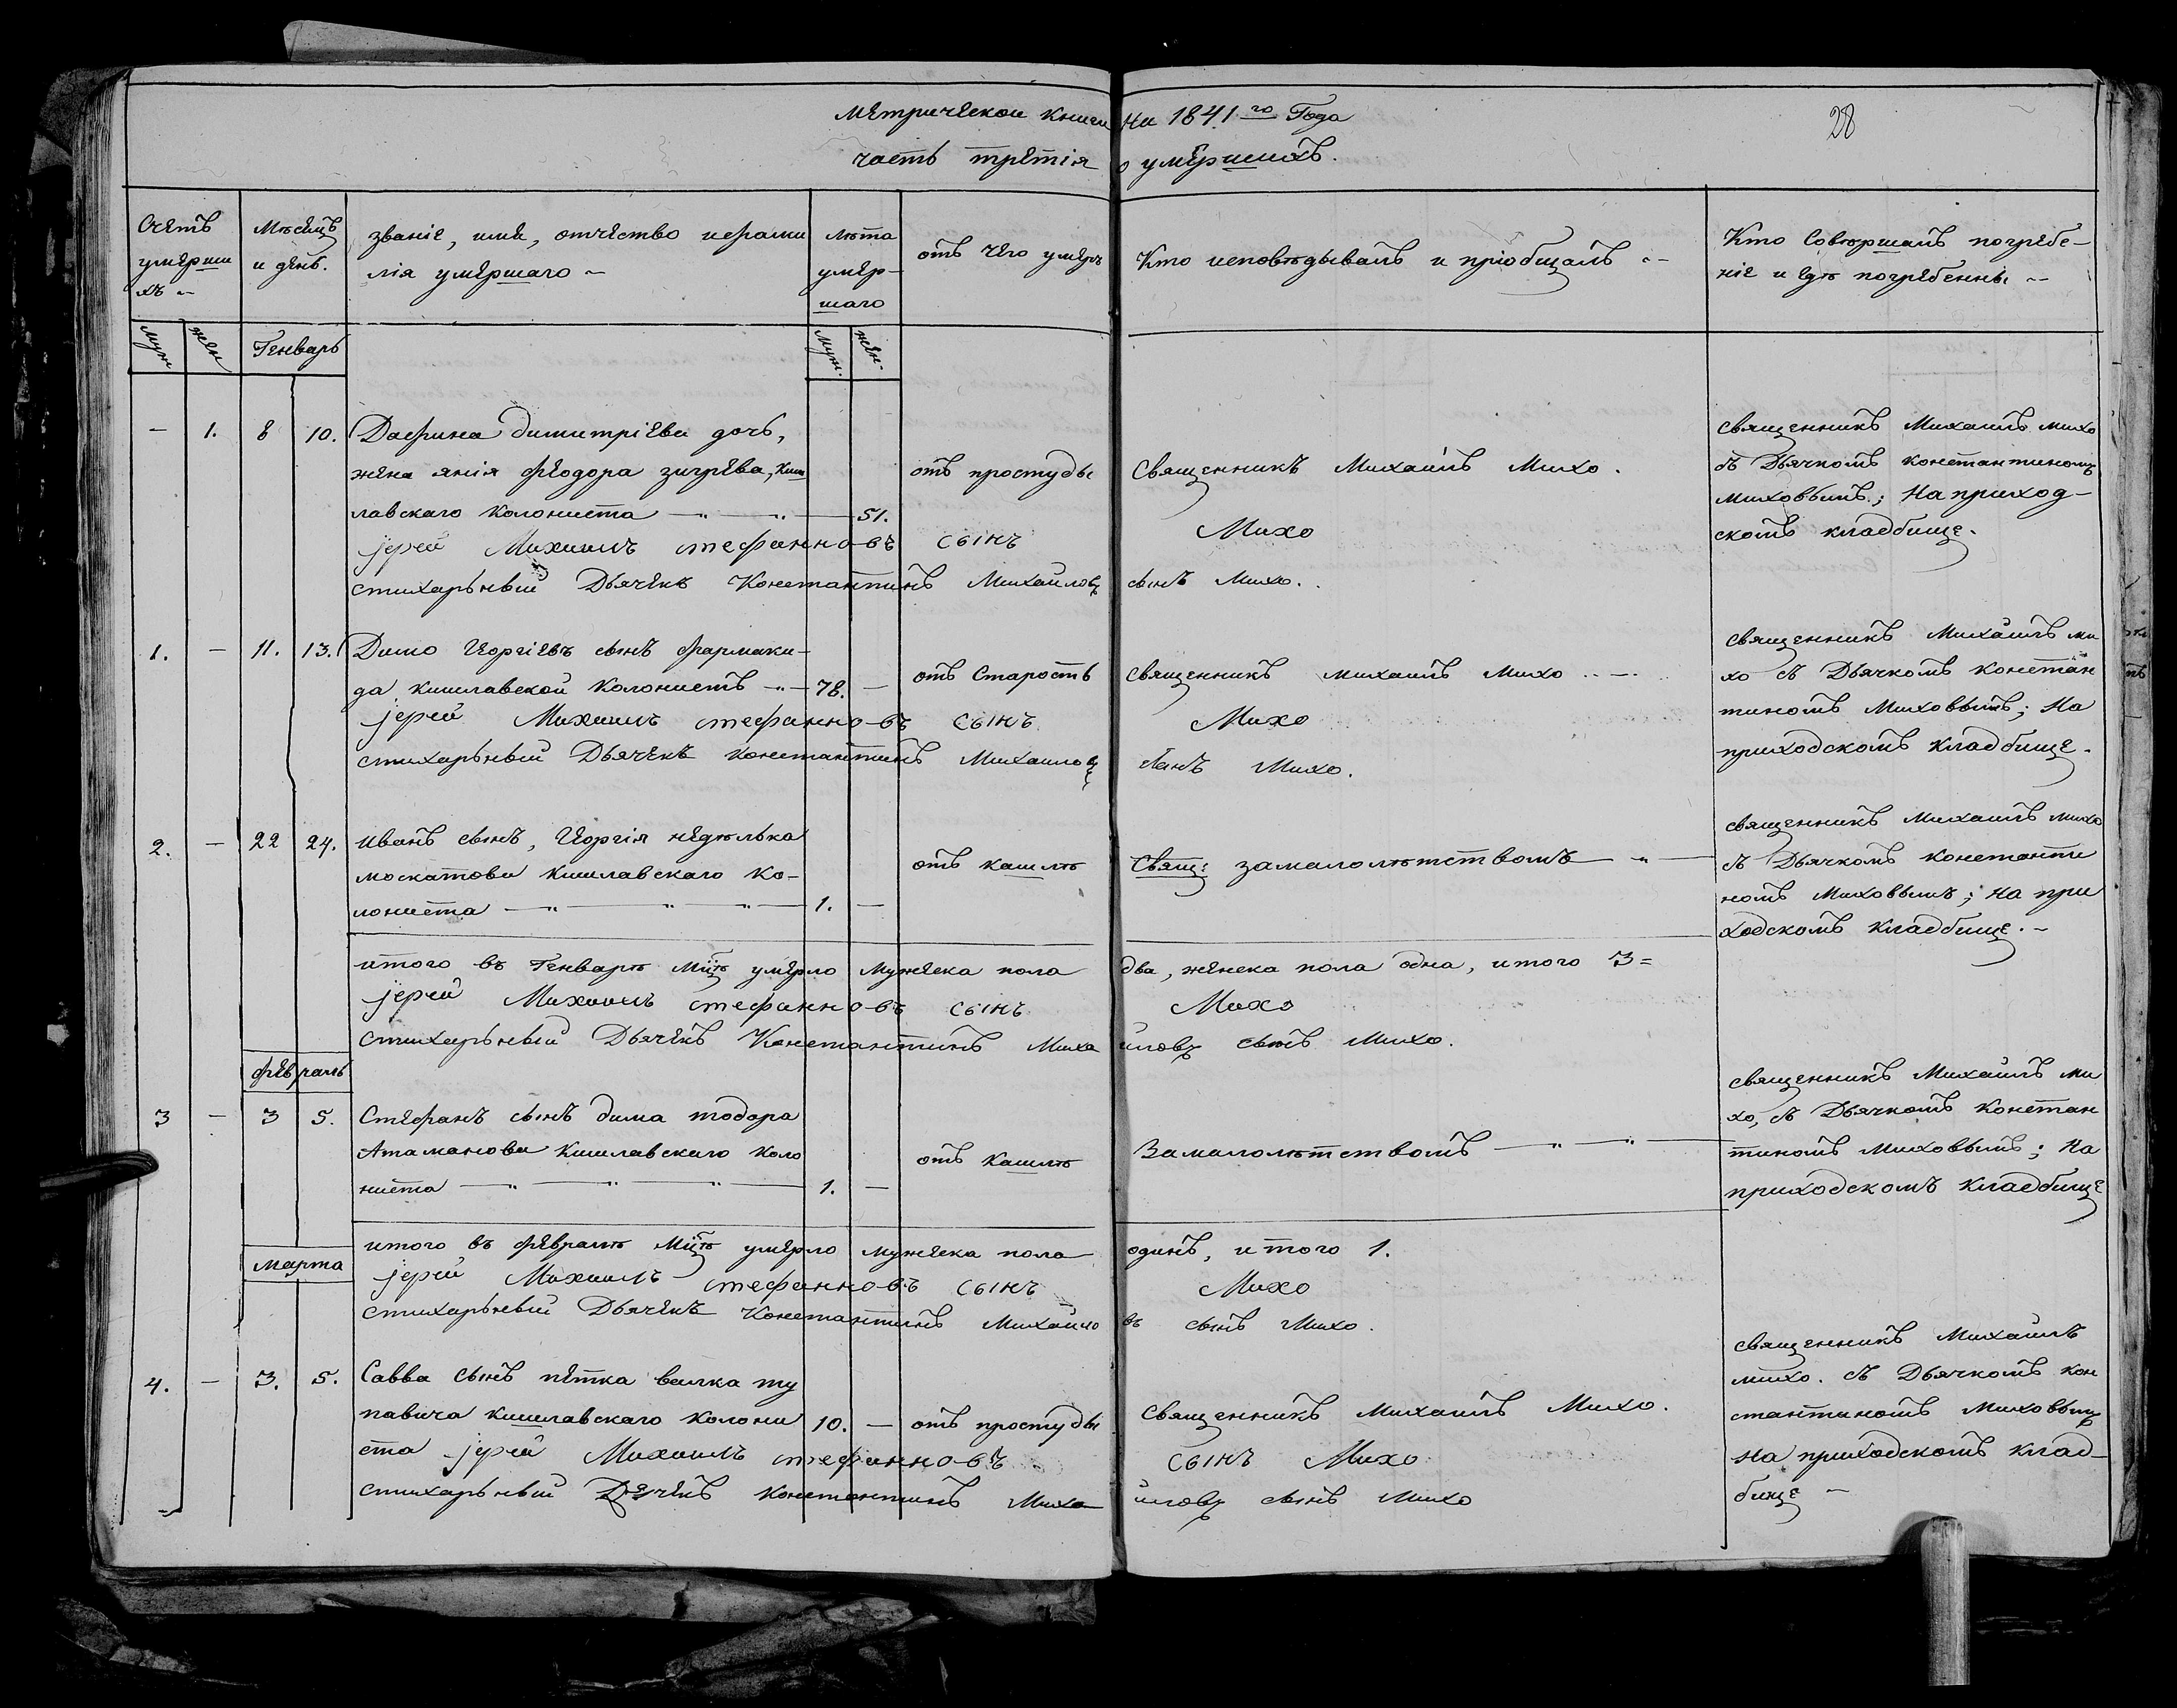 Метрической книги на 1841го Года
28
часть третія о умершихъ.
Счетъ умерши хъ
Мѣсяцъ и день.
званіе, имя, отчество и фами
лія умершаго
лѣта умер-
шаго
отъ чего умеръ
Кто исповѣдывалъ и пріобщалъ
Кто Совершалъ погребе-
ніе и гдѣ погребенны
Муж жен
Генварь
муж. жен.
— 1. 8 10.
Дафина димитріева дочь,
жена янія феодора зигрева, Киш
лавскаго Колониста 51.
отъ простуды
Священникъ Михаилъ Михо.
священникъ Михаилъ михо
съ Дьячкомъ константиномъ
миховымъ; На приход-
скомъ кладбище.
јерей Михаилъ стефанновъ сынъ Михо
стихарьный Дьячекъ Константинъ Михайловъ сынъ Михо.
1. — 11. 13.
Димо Георгіевъ сынъ фармаки-
да кишлавской Колонистъ 78. —
отъ Старость
священникъ михаилъ Михо
священникъ Михаилъ ми
хо съ Дьячкомъ констан
тиномъ Миховымъ; На
приходскомъ кладбище.
јерей Михаилъ стефанновъ сынъ Михо
стихарьный Дьячекъ константинъ Михаиловъ сынъ Михо.
2. — 22 24.
иванъ сынъ, Георгія недѣлька
москатова Кишлавскаго Ко-
лониста 1. —
отъ кашлѣ
Свящ: замалолѣтствомъ
священникъ Михаилъ михо
съ Дьячкомъ константи
номъ Миховымъ; на при
ходскомъ кладбище.
итого въ Генварѣ Мцѣ умерло мужеска пола два, женска пола одна, итого 3=
јерей Михаилъ стефанновъ сынъ Михо
стихарьный Дьячекъ Константинъ Миха иловъ сынъ Михо.
февраль
3 — 3 5.
Стефанъ сынъ дима тодора
Атаманова Кишлавскаго Коло
ниста 1. —
отъ Кашлѣ
Замалолѣтствомъ
священникъ Михаилъ ми
хо, съ Дьячкомъ констан
тиномъ миховымъ; На
приходскомъ кладбище
итого въ февралѣ Мцѣ умерло мужеска пола одинъ, итого 1.
јерей Михаилъ стефанновъ сынъ Михо
стихарьный Дьячекъ Константинъ Михаило въ сынъ Михо.
марта
4. — 3. 5.
Савва сынъ петка велка ту
павича кишлавскаго колони 10. —
ста
отъ простуды
священникъ Михаилъ Михо.
священникъ Михаилъ
михо. съ Дьячкомъ кон
стантиномъ Миховымъ
на приходскомъ клад-
бище
јерей Михаилъ стефанновъ сынъ Михо
стихарьный Дьячекъ константинъ Миха иловъ сынъ Михо